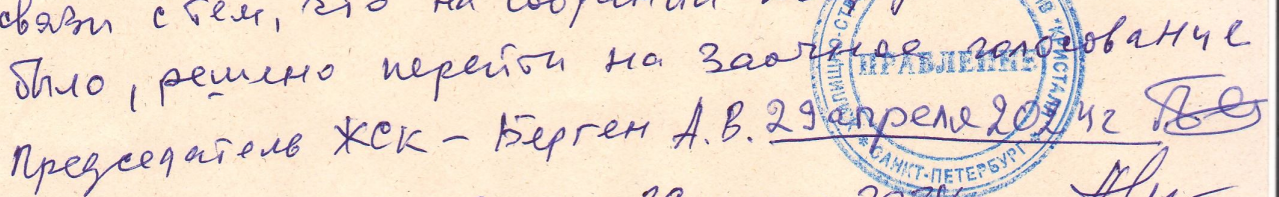 связи с тем, что на собрании
было, решено перейти на Заочное голосование
Председатель ЖСК – Берген А.В. 29 апреля 2024г
ПРАВЛЕНИЕ
"КРИСТАЛЛ"
* САНКТ-ПЕТЕРБУРГ *